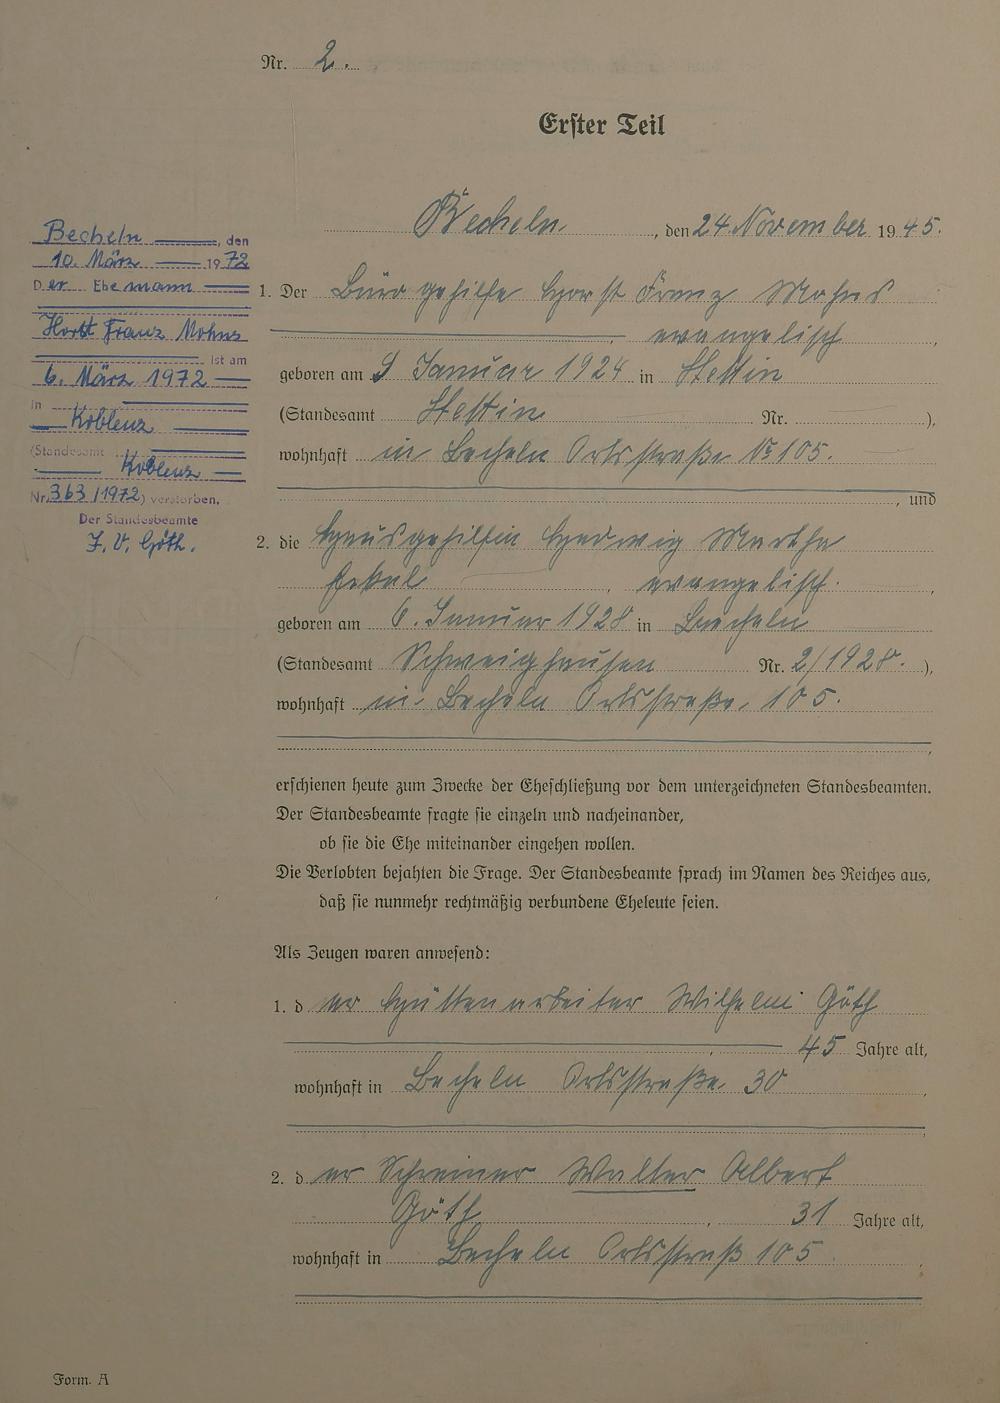 Nr. 2.
Erster Teil
Becheln, den 24. November 1945.
Becheln, den
10. März 1972
Der Ehemann
Horst Franz Mohns
ist am
6. März 1972
in
Koblenz
(Standesamt
Koblenz
Nr. 363/1972) verstorben.
Der Standesbeamte
J. V. Göth.
1. Der Bürogehilfe Horst Franz Mohns
, evangelisch,
geboren am 9 Januar 1924 in Stettin
(Standesamt Stettin Nr. ),
wohnhaft in Becheln Ortsstraße № 105.
, und
2. die Hausgehilfin Hedwig Martha
, evangelisch.
geboren am 6. Januar 1928 in Becheln
(Standesamt Schweighausen Nr. 2/1928.),
wohnhaft in Becheln Ortsstraße 105.
erschienen heute zum Zwecke der Eheschließung vor dem unterzeichneten Standesbeamten.
Der Standesbeamte fragte sie einzeln und nacheinander,
ob sie die Ehe miteinander eingehen wollen.
Die Verlobten bejahten die Frage. Der Standesbeamte sprach im Namen des Reiches aus,
daß sie nunmehr rechtmäßig verbundene Eheleute seien.
Als Zeugen waren anwesend:
1. der Hüttenarbeiter Wilhelm Göth
, 45 Jahre alt,
wohnhaft in Becheln Ortsstraße 30
2. der Schreiner Walter Albert
Göth, 31 Jahre alt,
wohnhaft in Becheln Ortsstraß 105
Form. A